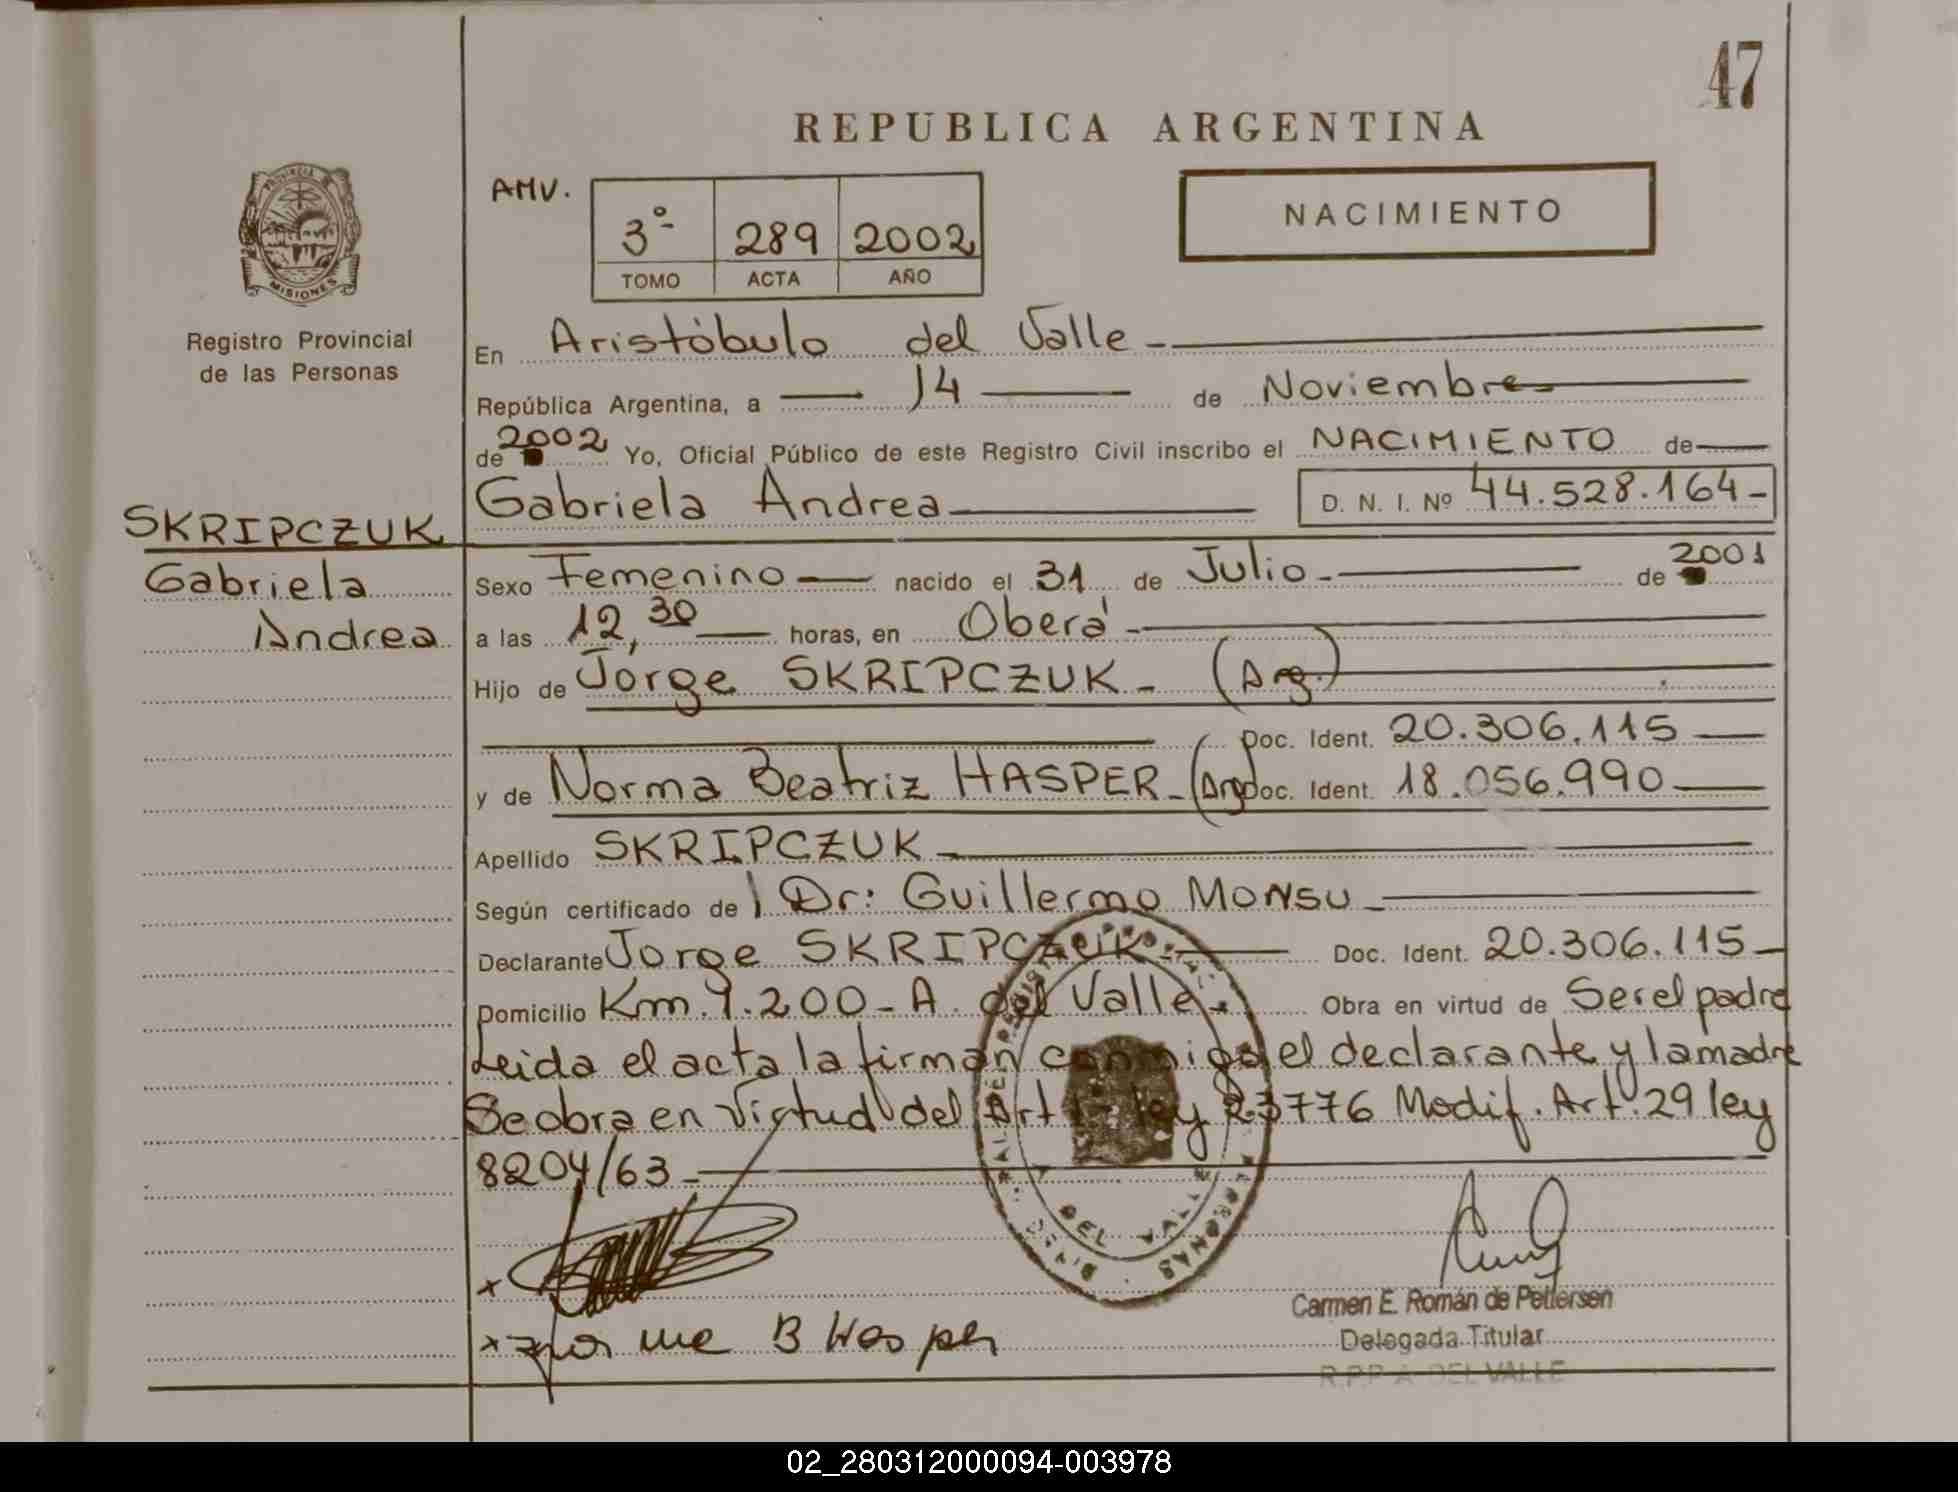 47
REPUBLICA ARGENTINA
AMV.
3º 289 2002
TOMO ACTA AÑO
NACIMIENTO
PROVINCIA DE
MISIONES
Registro Provincial
de las Personas
En Aristóbulo del Valle
República Argentina, a 14 de Noviembre
de 2002 Yo, Oficial Público de este Registro Civil inscribo el NACIMIENTO de
Gabriela Andrea D. N. I. Nº 44.528.164
SKRIPCZUK
Gabriela
Andrea
Sexo Femenino nacido el 31 de Julio de 2001
a las 12,30 horas, en Oberá
Hijo de Jorge SKRIPCZUK (Arg.)
Doc. Ident. 20.306.115
y de Norma Beatriz HASPER (Arg Doc. Ident. 18.056.990
Apellido SKRIPCZUK
Según certificado de Dr: Guillermo MONSU
Declarante Jorge SKRIPCZUK Doc. Ident. 20.306.115
Domicilio Km. 1.200 - A. del Valle Obra en virtud de Ser el padre
Leida el acta la firman conmigo el declarante y la madre
Se obra en virtud del Art 1- ley 23776 Modif. Art. 29 ley
8204/63
DEL VALLE
B Hasper
Carmen E. Román de Pettersen
Delegada Titular
R.P.P. A. DEL VALLE
02_280312000094-003978